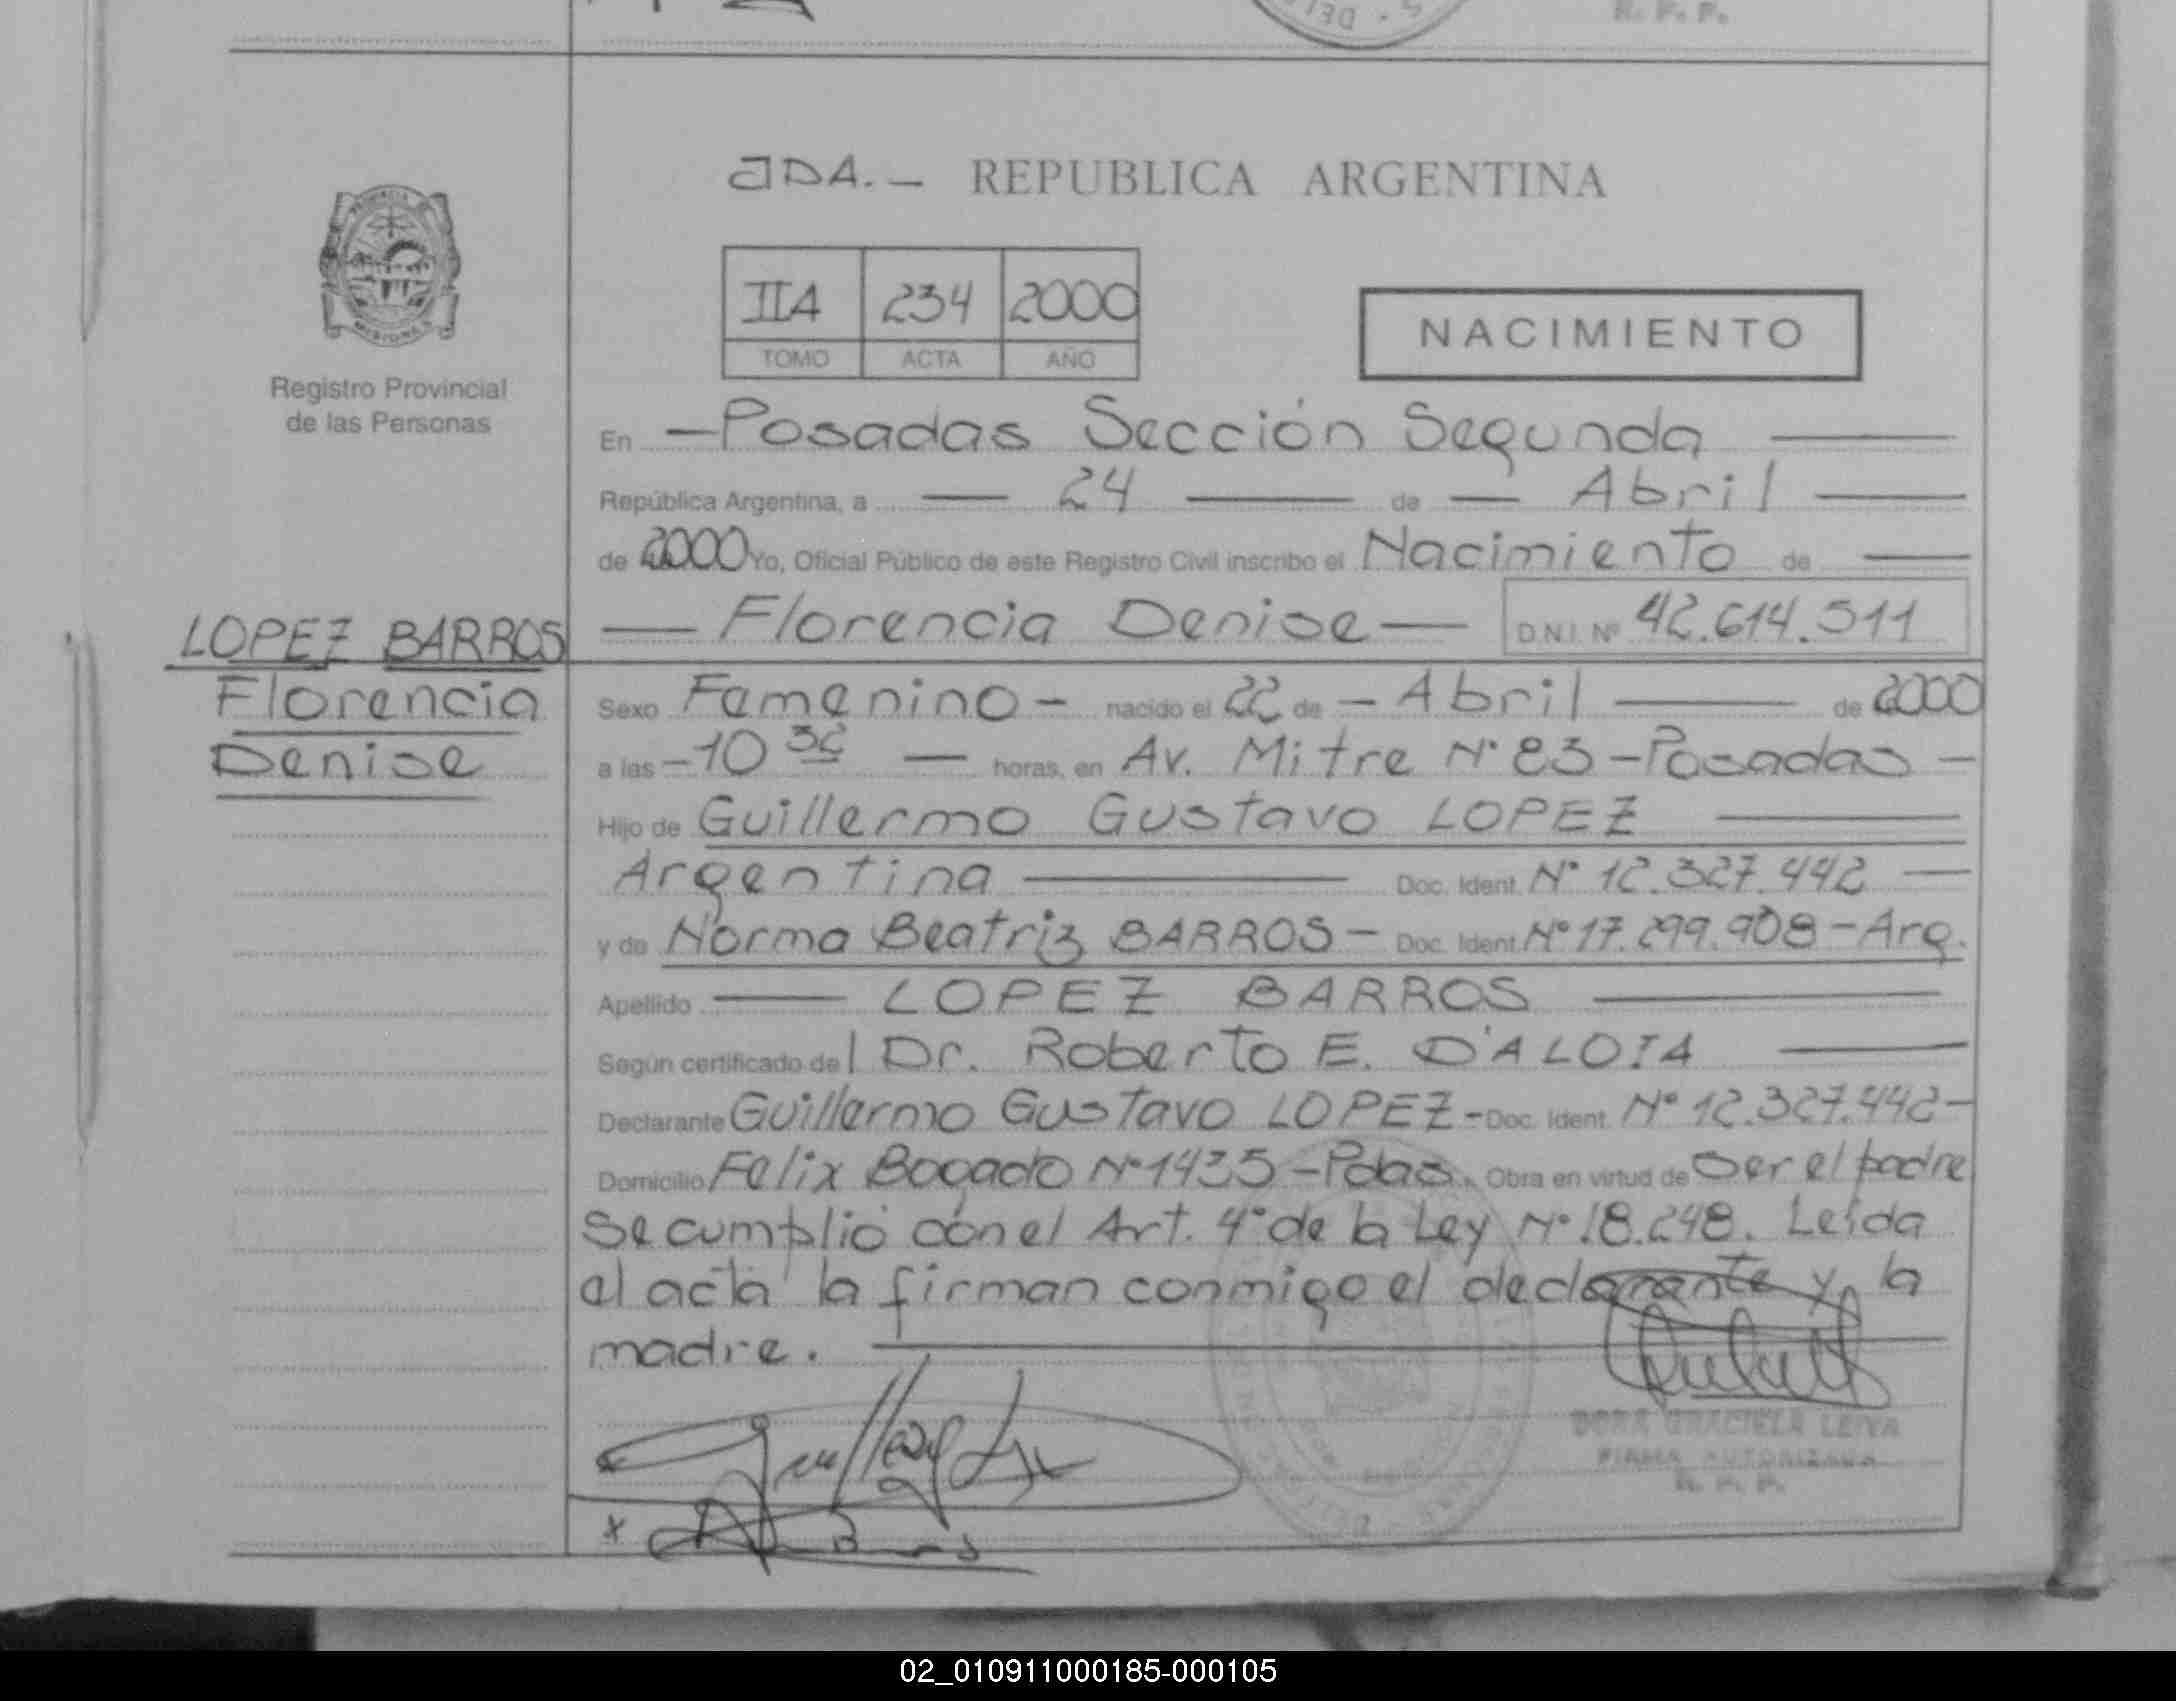 R. P. P.
JDA.— REPUBLICA ARGENTINA
IIA 234 2000
TOMO ACTA AÑO
NACIMIENTO
Registro Provincial
de las Personas
En —Posadas Sección Segunda —
República Argentina, a — 24 — de — Abril —
de 2000 Yo, Oficial Público de este Registro Civil inscribo el Nacimiento de —
— Florencia Denise — D.N.I. Nº 42.614.511
LOPEZ BARROS
Florencia
Denise
Sexo Femenino - nacido el 22 de - Abril — de 2000
a las -10 32 — horas, en Av. Mitre Nº 83 -Posadas -
Hijo de Guillermo Gustavo LOPEZ —
Argentina — Doc. Ident. Nº 12.327.442 —
y de Norma Beatriz BARROS - Doc. Ident. Nº 17.299.908 - Arg.
Apellido — LOPEZ BARROS —
Según certificado del Dr. Roberto E. D'ALOIA —
Declarante Guillermo Gustavo LOPEZ - Doc. Ident. Nº 12.327.442-
Domicilio Felix Bogado Nº 1435 -Pdas. Obra en virtud de ser el padre
Se cumplió con el Art. 4º de la Ley Nº 18.248. Leída
el acta la firman conmigo el declarante y la
madre. —
DORA GRACIELA LEIVA
FIRMA AUTORIZADA
R. P. P.
02_010911000185-000105